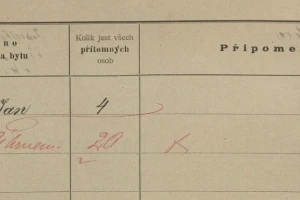 no
a bytu
Kolik jest všech
přítomných
osob
Připome
Jan 4
20